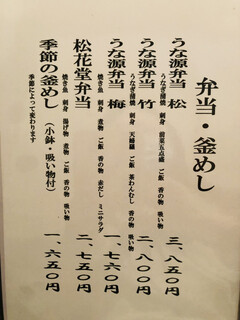 弁当・釜めし
うな源弁当 松 三、八五〇円
うなぎ蒲焼 刺身 前菜五点盛 ご飯 香の物 吸い物
うな源弁当 竹 二、八〇〇円
うなぎ蒲焼 刺身 天婦羅 ご飯 茶わんむし 香の物 吸い物
うな源弁当 梅 一、七六〇円
焼き魚 刺身 煮物 ご飯 香の物 赤だし ミニサラダ
松花堂弁当 二、七五〇円
焼き魚 刺身 揚げ物 煮物 ご飯 香の物 吸い物
季節の釜めし (小鉢・吸い物付) 一、六五〇円
季節によって変わります